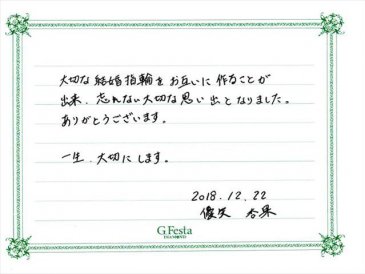 大切な結婚指輪をお互いに作ることが
出来、忘れない大切な思い出となりました。
ありがとうございます。
一生、大切にします。
2018.12.22
優矢 杏果
G.Festa
DIAMONDS